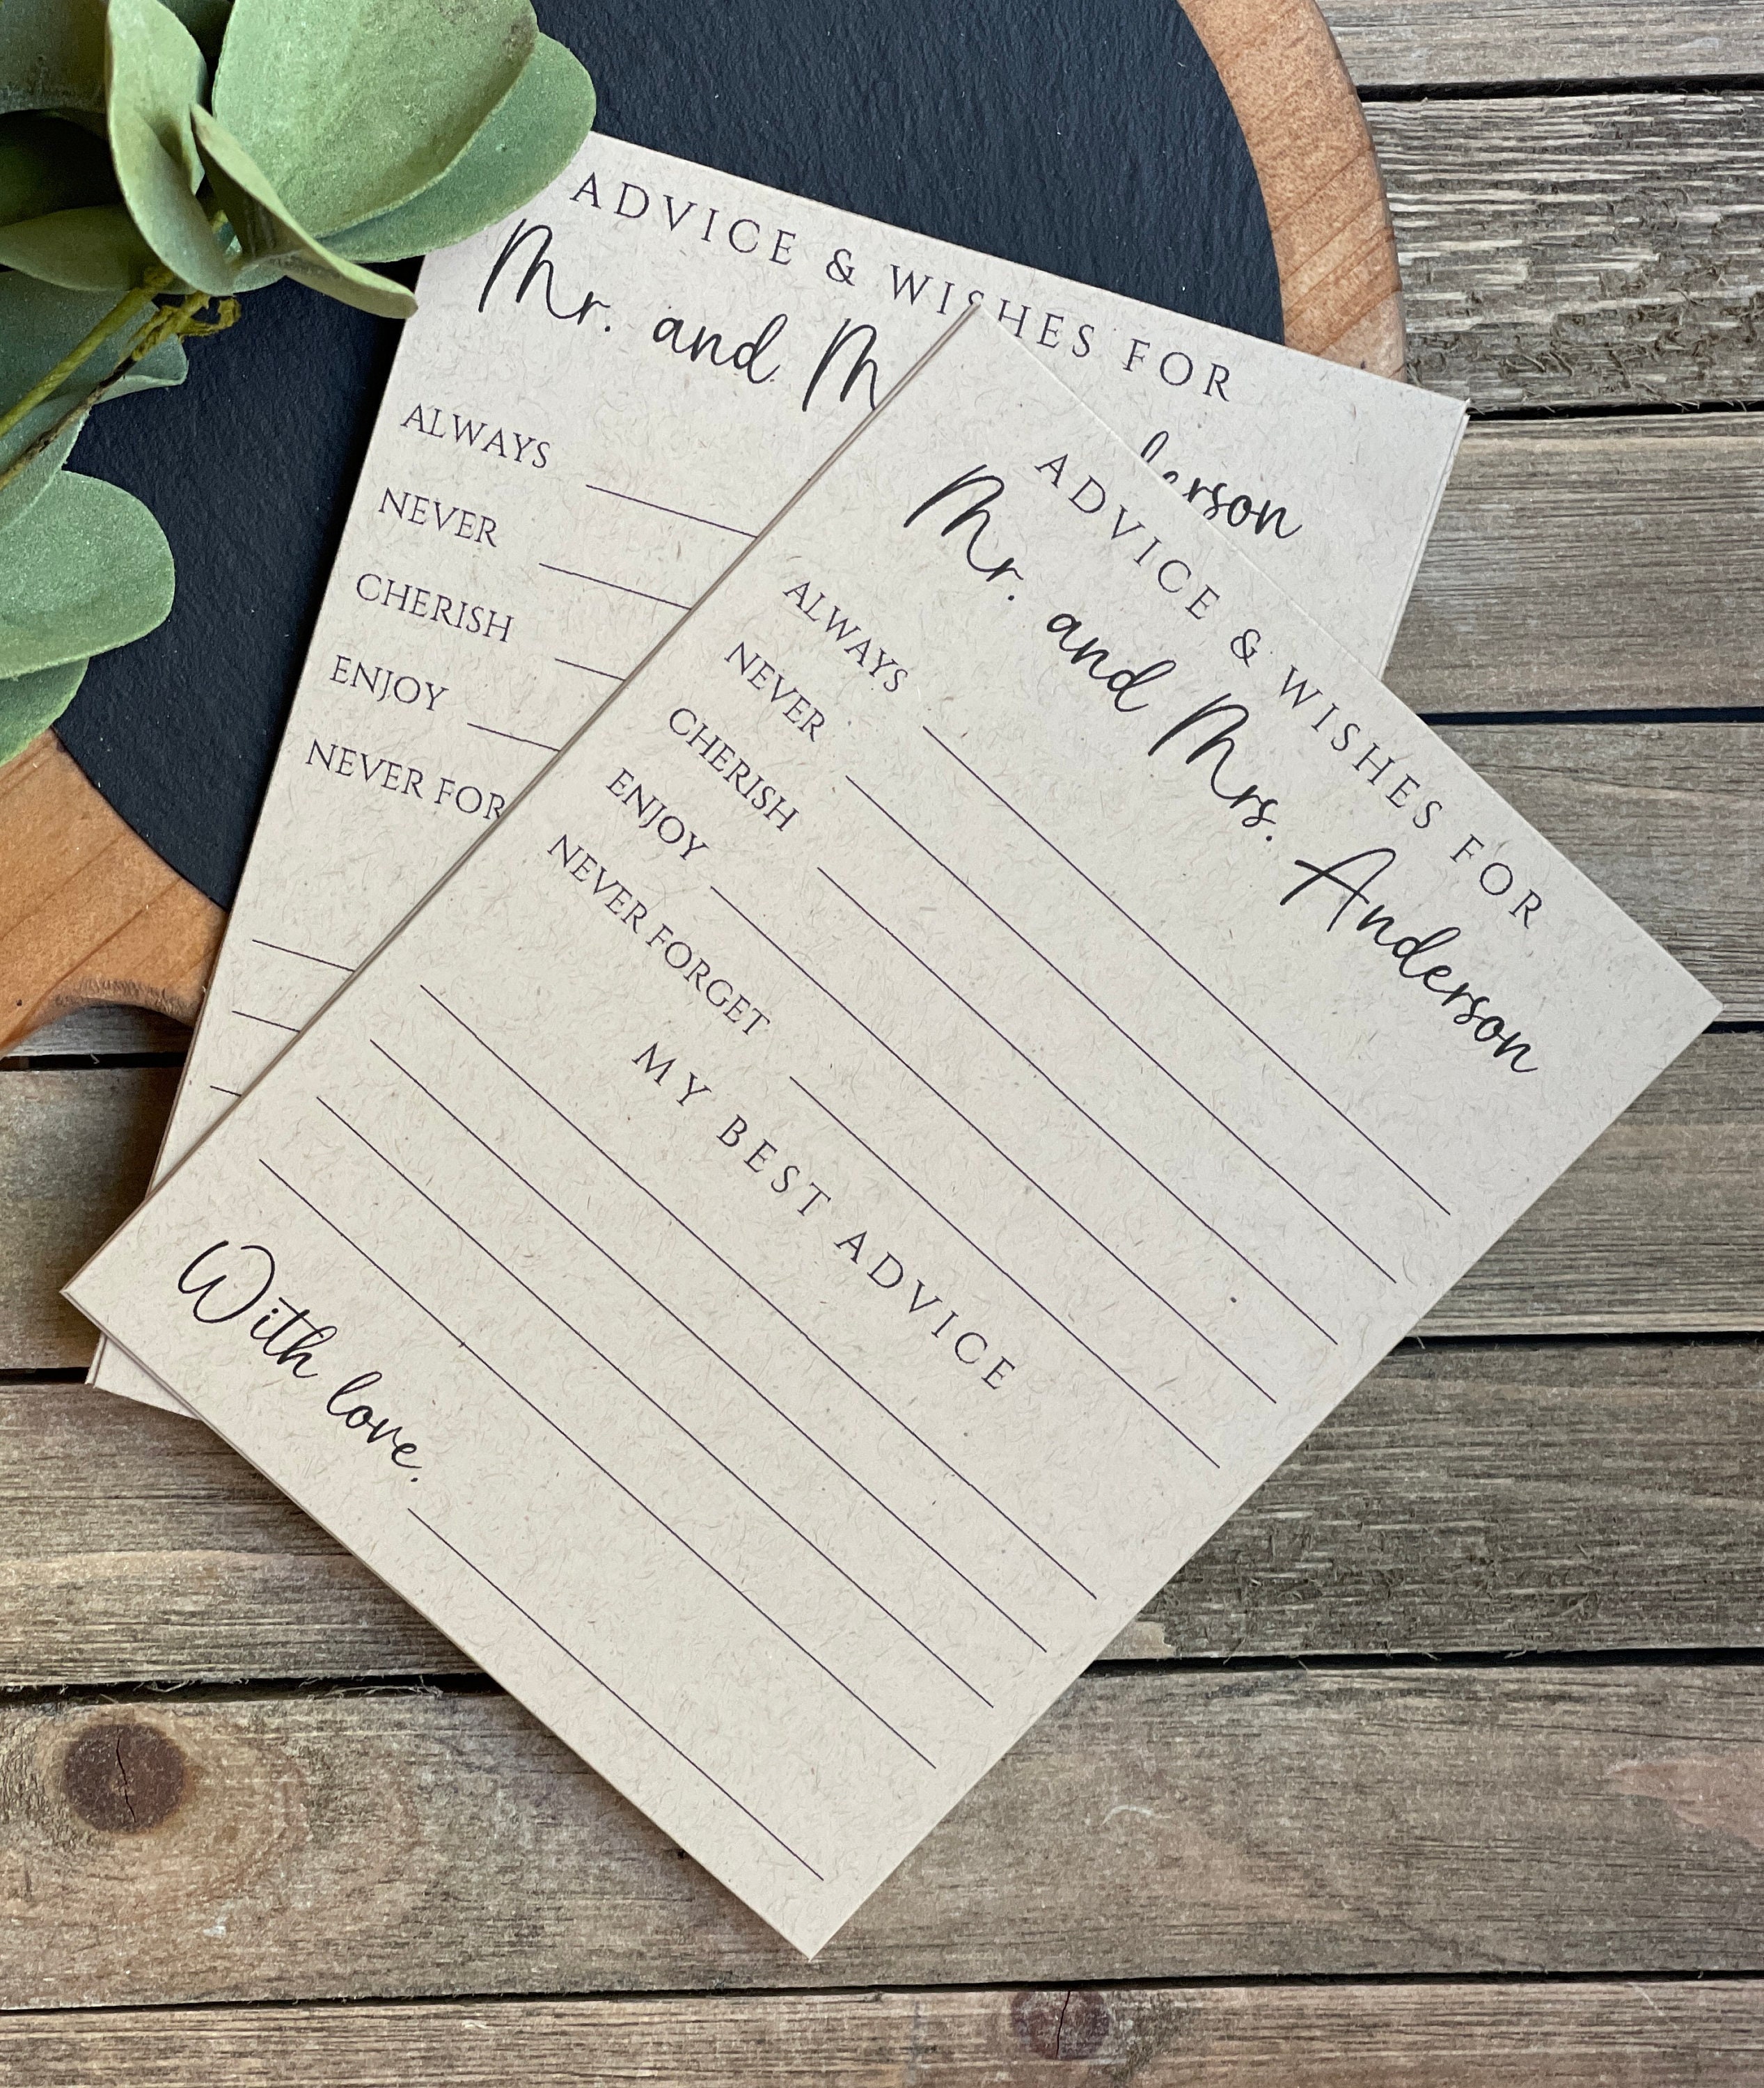 ADVICE & WISHES FOR
Mr. and M
erson
ALWAYS
NEVER
CHERISH
ENJOY
NEVER FOR
ADVICE & WISHES FOR
Mr. and Mrs. Anderson
ALWAYS
NEVER
CHERISH
ENJOY
NEVER FORGET
MY BEST ADVICE
With love.